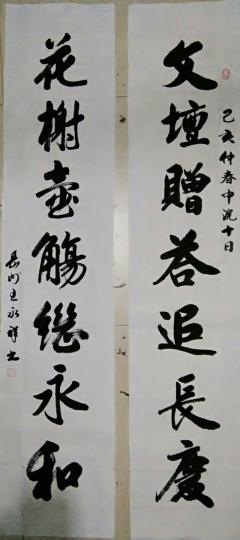 己亥仲春中浣十日
文壇贈荅追長慶
花榭壺觴繼永和
長州王永祥書